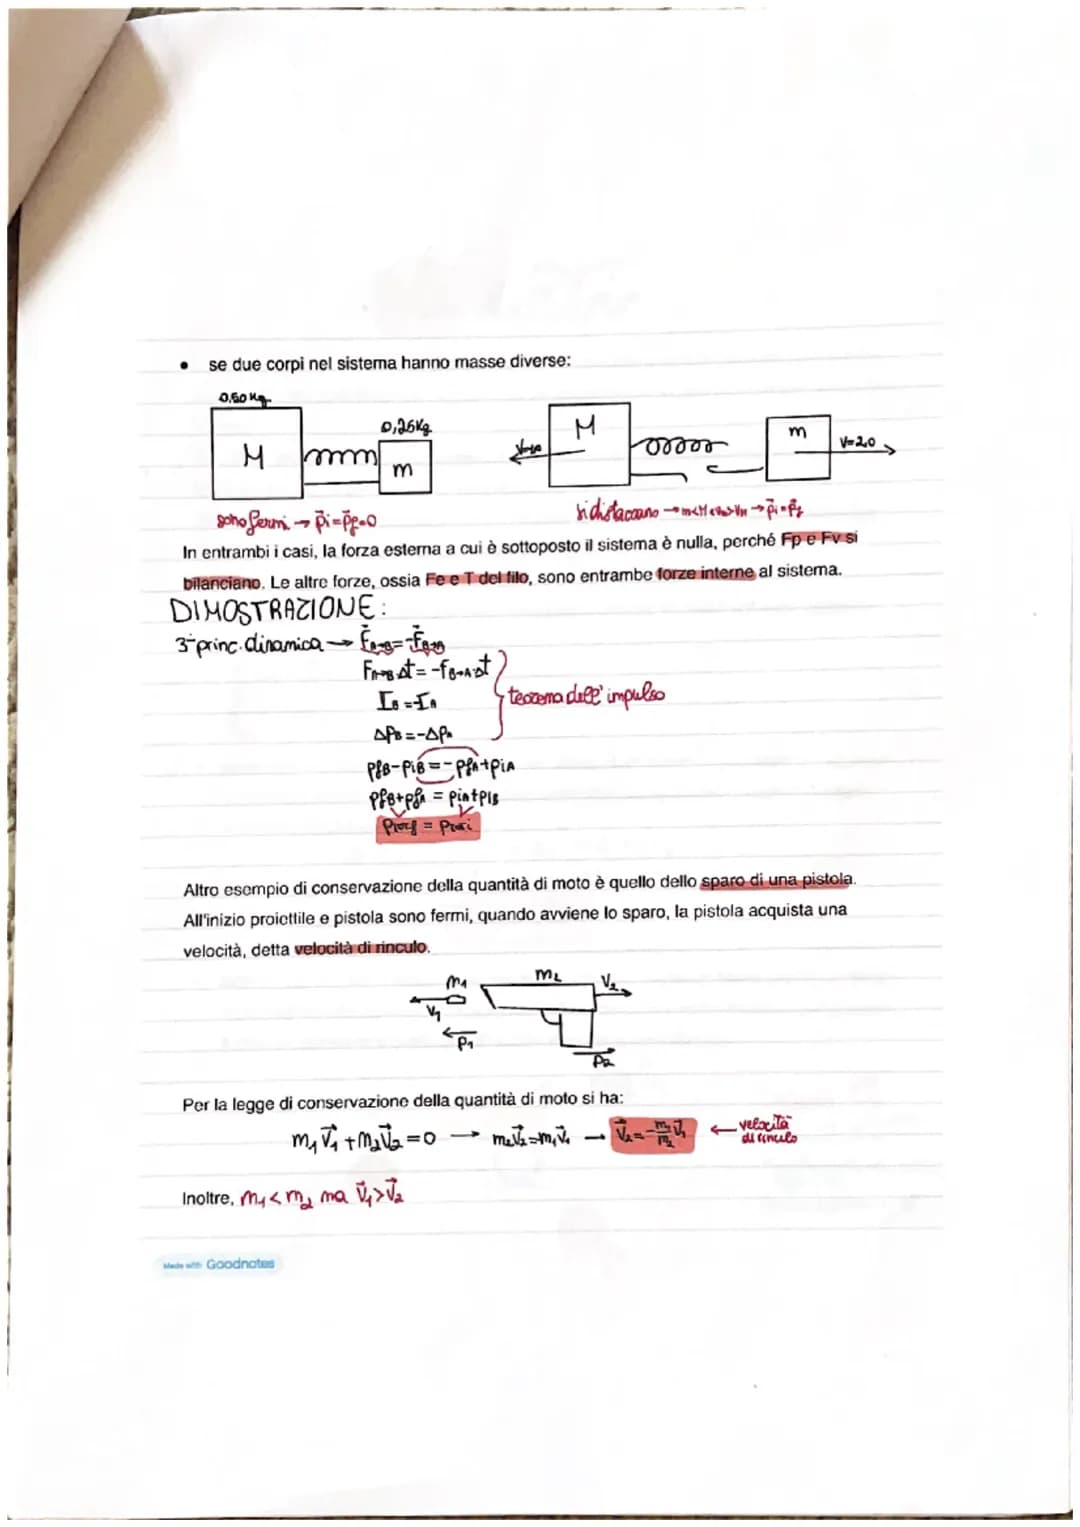 • se due corpi nel sistema hanno masse diverse:
0,50 Kg
0,26Kg
M
m
M
m
V=2,0
sono fermi → p⃗i=p⃗f=0
si distaccano → m<M e vm>VM → p⃗i=p⃗f
In entrambi i casi, la forza esterna a cui è sottoposto il sistema è nulla, perché Fp e Fv si
bilanciano. Le altre forze, ossia Fe e T del filo, sono entrambe forze interne al sistema.
DIMOSTRAZIONE:
3° princ. dinamica → F⃗A→B=-F⃗B→A
FA→B Δt = -fB→A Δt
IB = -IA
teorema dell'impulso
ΔPB = -ΔPA
PfB-PiB = -PfA+PiA
PfB+PfA = PiA+PiB
Ptotf = Ptoti
Altro esempio di conservazione della quantità di moto è quello dello sparo di una pistola.
All'inizio proiettile e pistola sono fermi, quando avviene lo sparo, la pistola acquista una
velocità, detta velocità di rinculo.
m1
m2
V2
V1
P1
P2
Per la legge di conservazione della quantità di moto si ha:
m1V⃗1+m2V⃗2=0 → m2V⃗2=m1V⃗1 → V⃗2=-m1/m2 V⃗1 ← velocità di rinculo
Inoltre, m1<m2 ma V⃗1>V⃗2
Made with Goodnotes